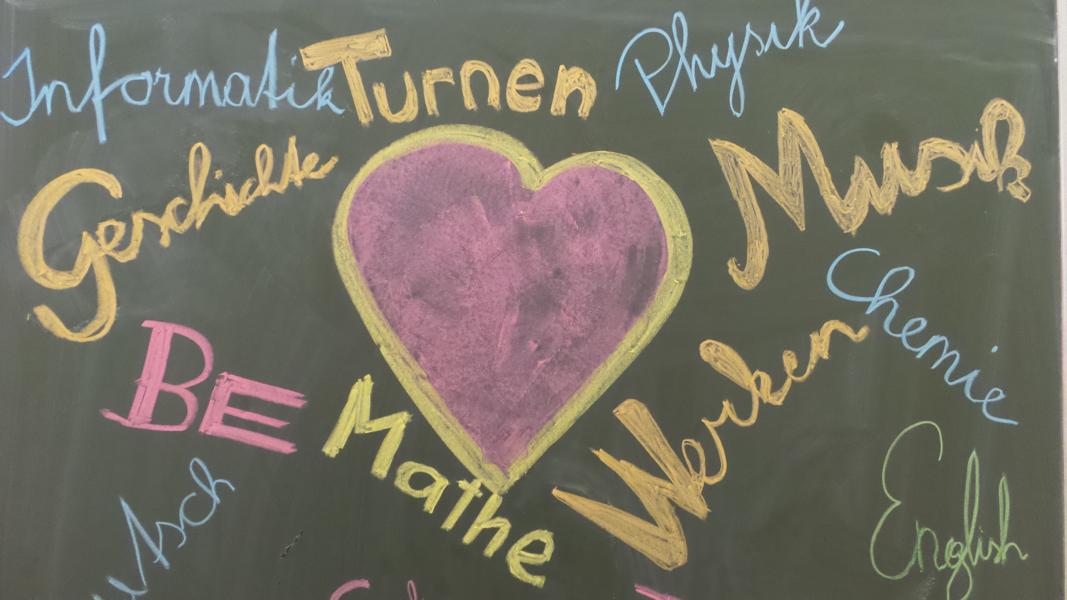 Informatik
Turnen
Physik
Geschichte
Musik
Chemie
BE
Werken
Mathe
English